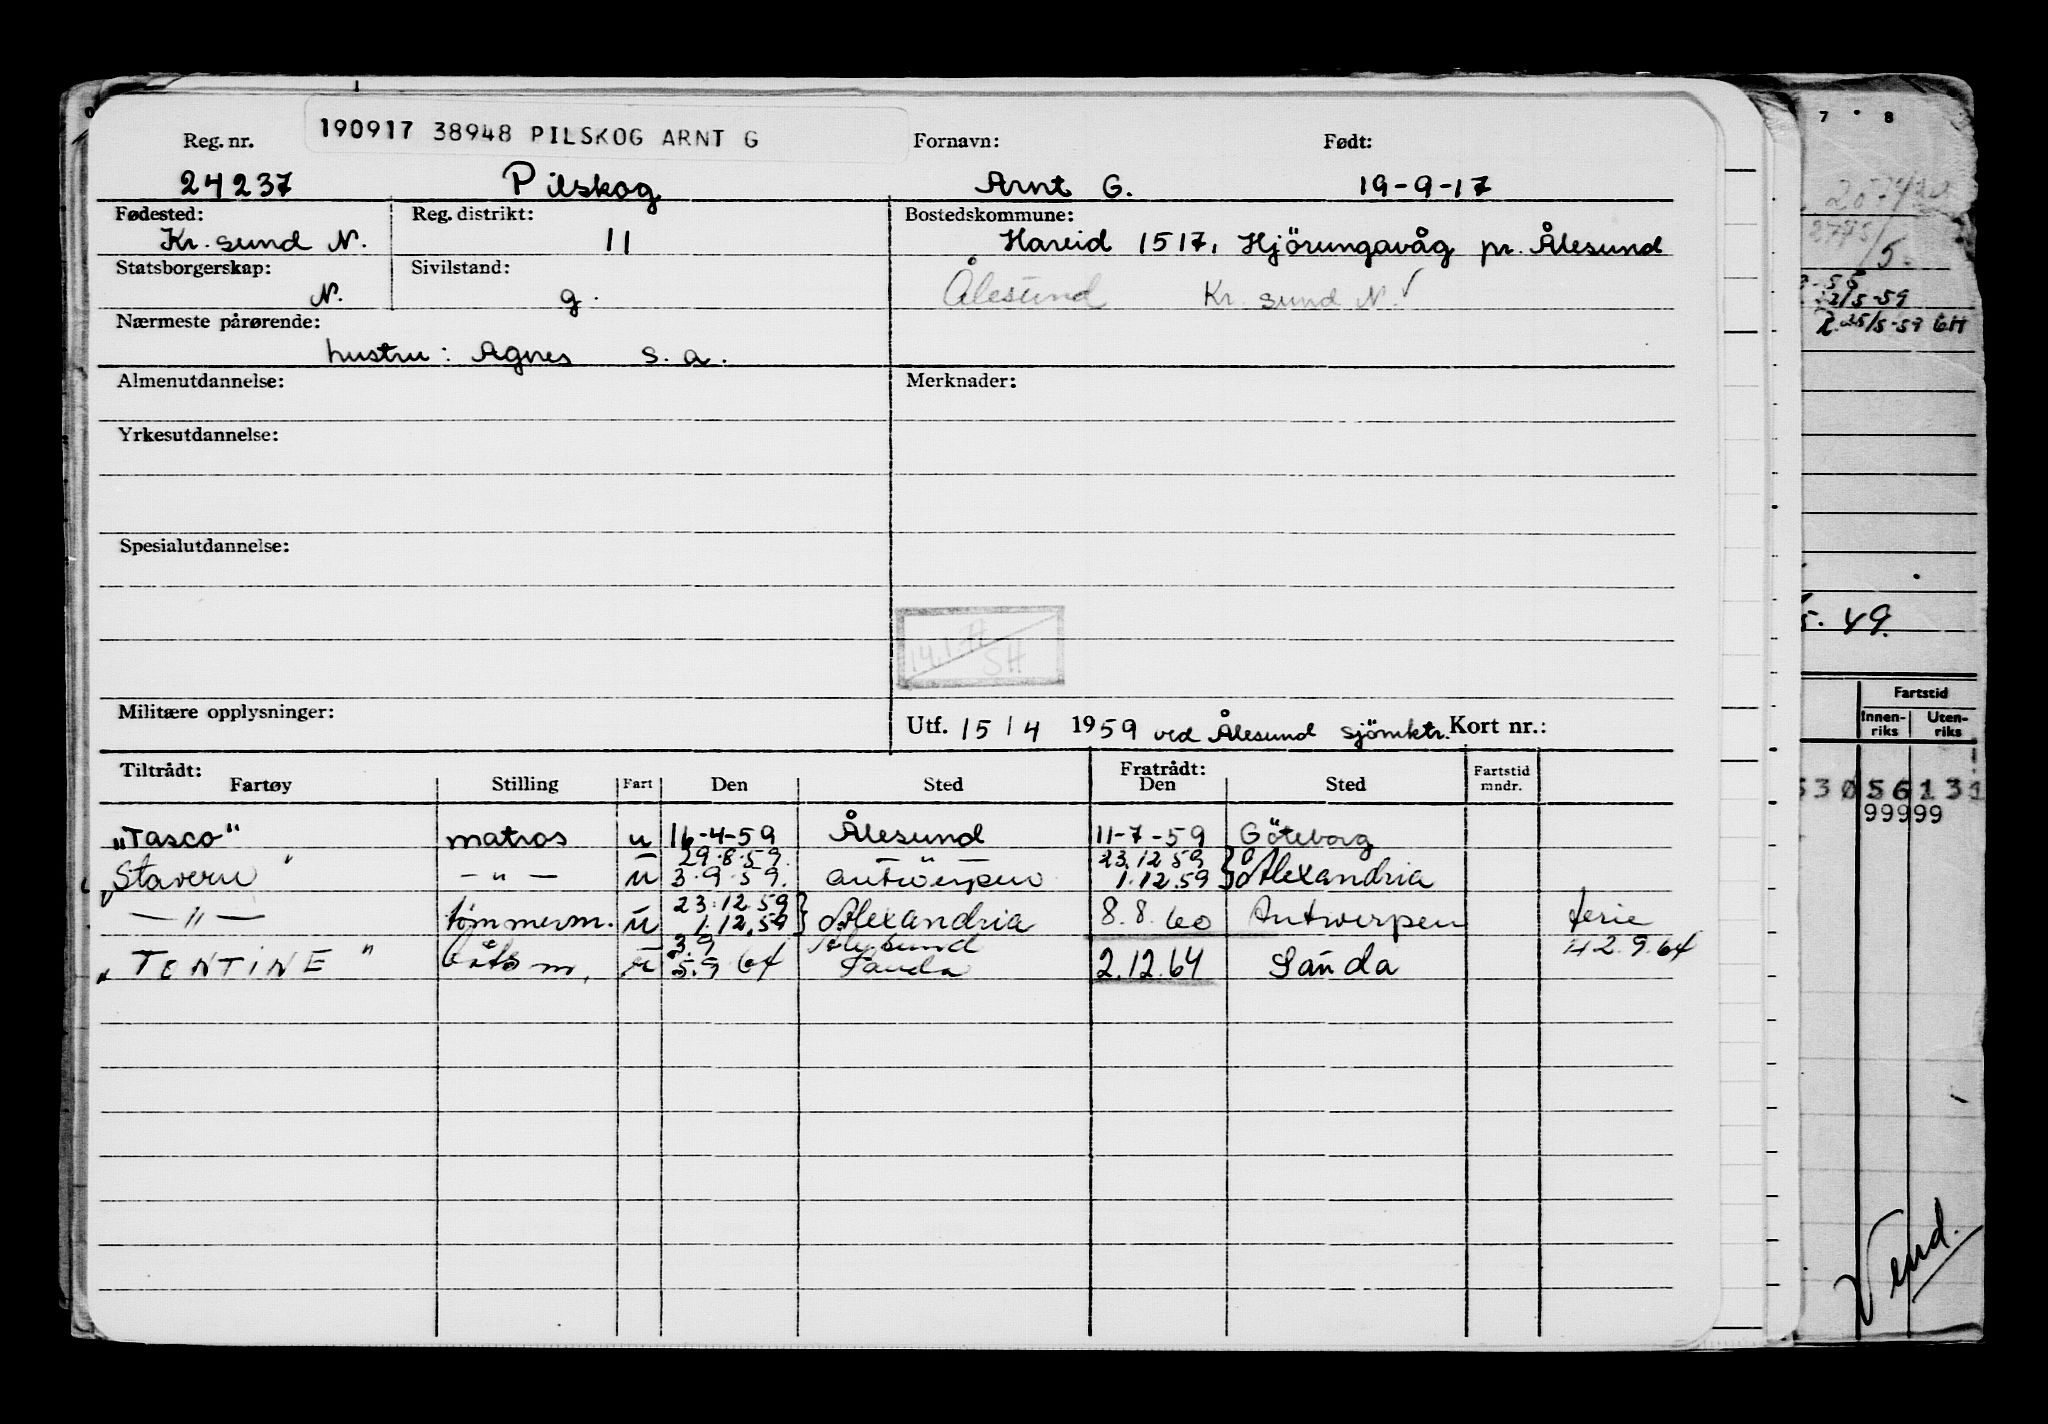 190917 38948 PILSKOG ARNT G
Reg. nr. Fornavn: Født:
24237 Pilskog Arnt G. 19-9-17
Fødested: Reg. distrikt: Bostedskommune:
Kr. sund N. 11 Hareid 1517, Hjörungavåg pr. Ålesund
Statsborgerskap: Sivilstand:
N. g. Ålesund Kr. sund N.
Nærmeste pårørende:
hustru: Agnes s. a.
Almenutdannelse: Merknader:
Yrkesutdannelse:
Spesialutdannelse:
SH
Militære opplysninger: Utf. 15/4 1959 ved Ålesund sjömktr. Kort nr.:
Tiltrådt: Fratrådt: Fartstid
Fartøy Stilling Fart Den Sted Den Sted mndr.
"Tasco" matros u 16-4-59 Ålesund 11-7-59 Göteborg
29.8.59. — " — 23.12.59
Stavern " — " — u 3.9.59. antwerpen 1.12.59 Alexandria
23.12.59
— " — tømmerm. u 1.12.59 Alexandria 8.8.60 Antwerpen ferie
3.9
"TENTINE" båtsm. u 5.9 64 Sauda 2.12.64 Sauda 2.9.64
7 8
5.
22/5-59
25/5-59 GH
49.
Fartstid
Innen-riks Uten-riks
53056131
99999
Vend.